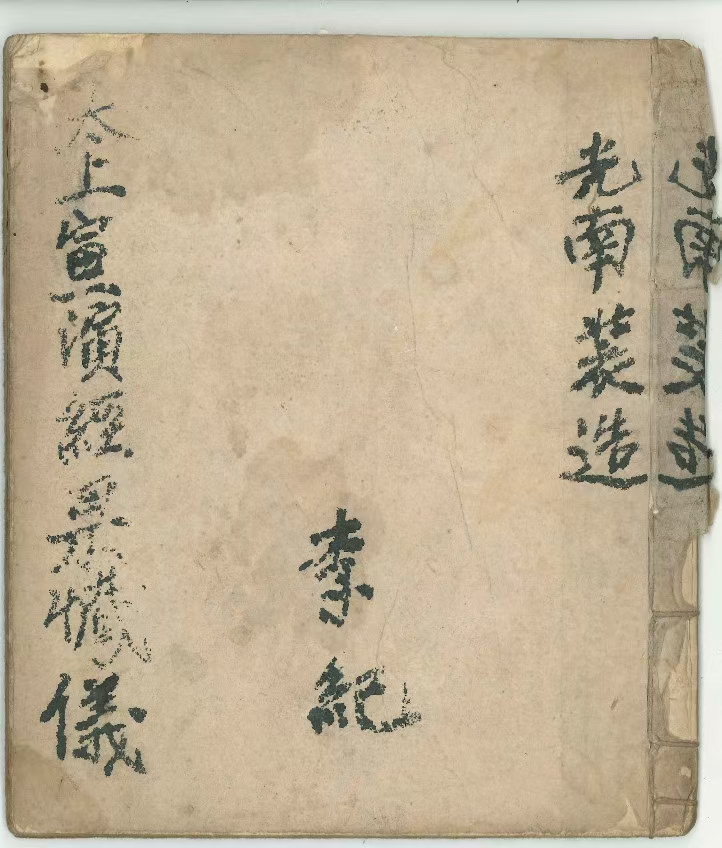 光南裝造
光南裝造
李紀
太上宣演經果懺儀